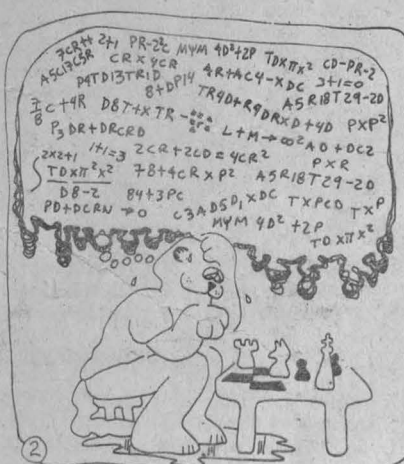 7CR++ 2+1 PR-2²C MYM 4D²+2P TDXπX² CD-PR-2
ASC17C5R CR X 4CR 4R+AC4-XDC 3+1=0
D4TD13TR1D 8+DP14 TR4D+R9DRXD+4D A5R18T29-2D
7/8 C+4R D8T+XTR L+M→∞² AD+DC2 PXP²
P3DR+DRCRD PXR
2X2+1 1+1=3 2CR+2CD=4CR²
TDXπ²X² 78+4CRXP² A5R18T29-2D
D8-2 84+3PC
PD+DCRN→0 C3AD5D1XDC TXPCD TXP
MYM 4D²+2P
TDXπX²
2